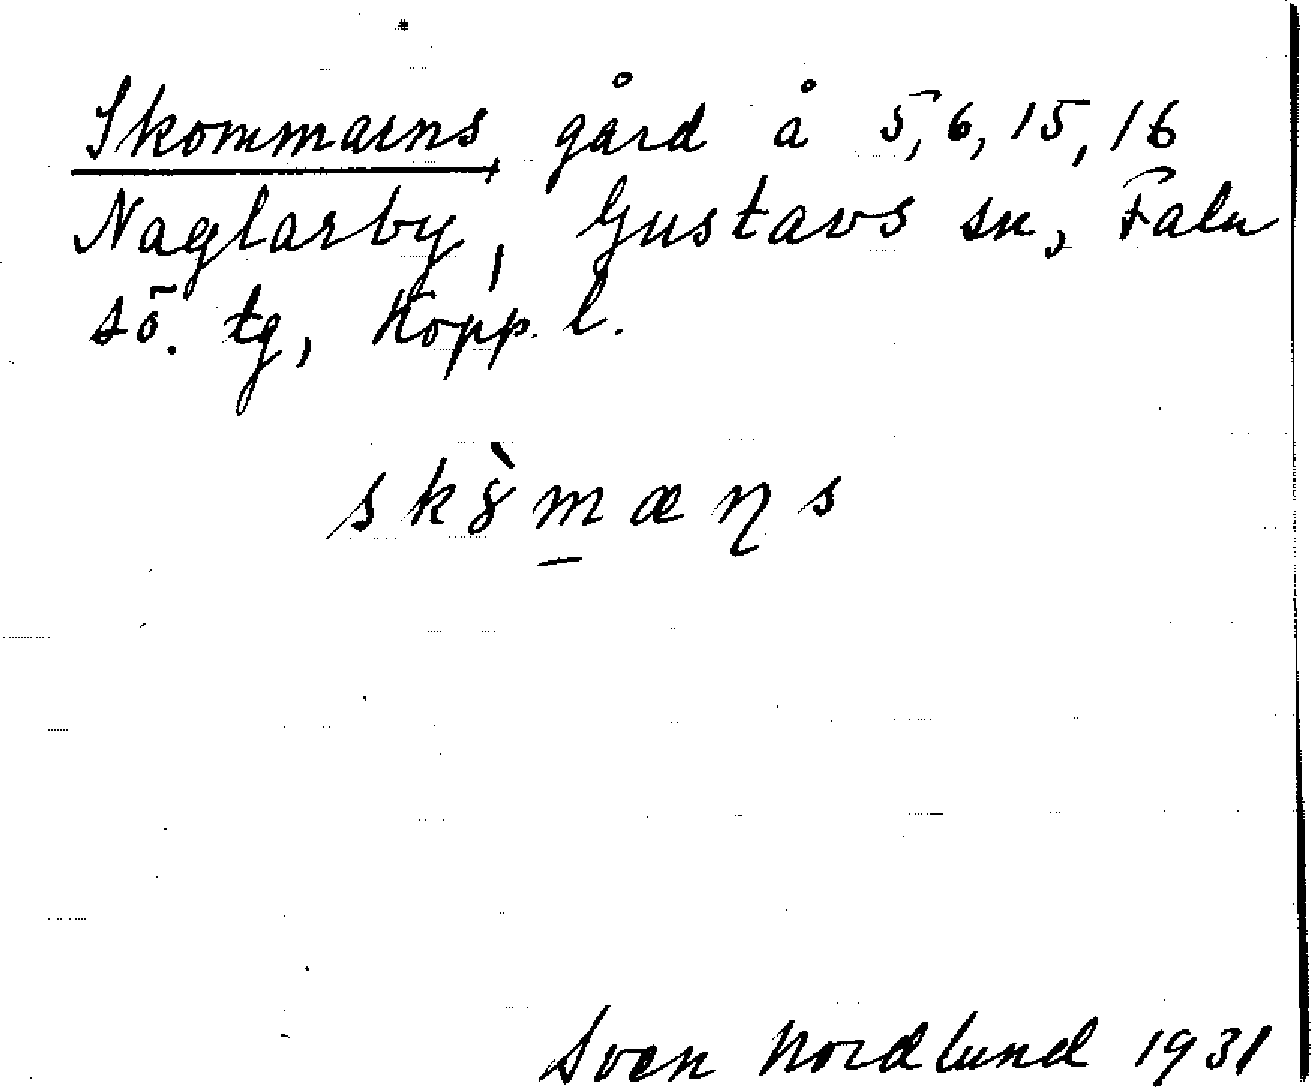 Skommarns, gård å 5, 6, 15, 16
Naglarby, Gustavs sn, Falu
sö. tg, Kopp. l.
Sven Nordlund 1931